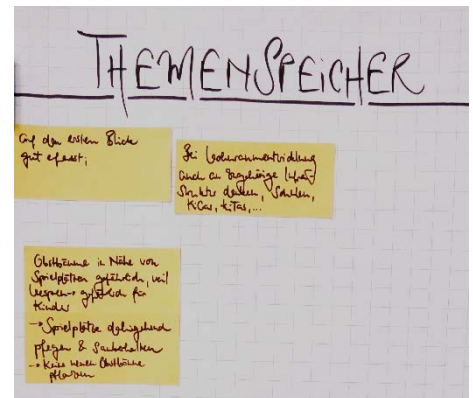 THEMENSPEICHER
auf den ersten Blick
gut erfasst;
Bei Wohnraumentwicklung
auch an zugehörige Infra-
struktur denken, Schulen,
KiGas, KiTas,...
Obstbäume in Nähe von
Spielplätzen gefährlich, weil
Wespen → gefährlich für
Kinder
→ Spielplätze dahingehend
pflegen & sauberhalten
→ Keine neuen Obstbäume
pflanzen